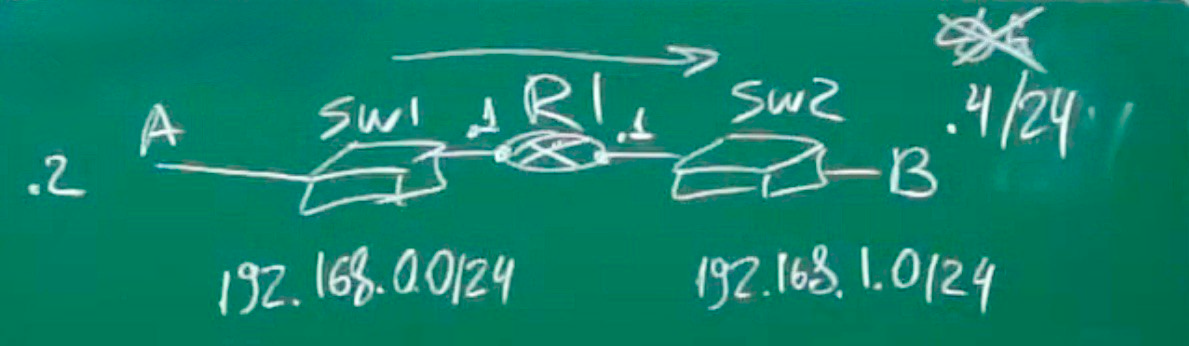 A SW1 .1 R1 .1 SW2 .4/24
.2 B
192.168.0.0/24 192.168.1.0/24